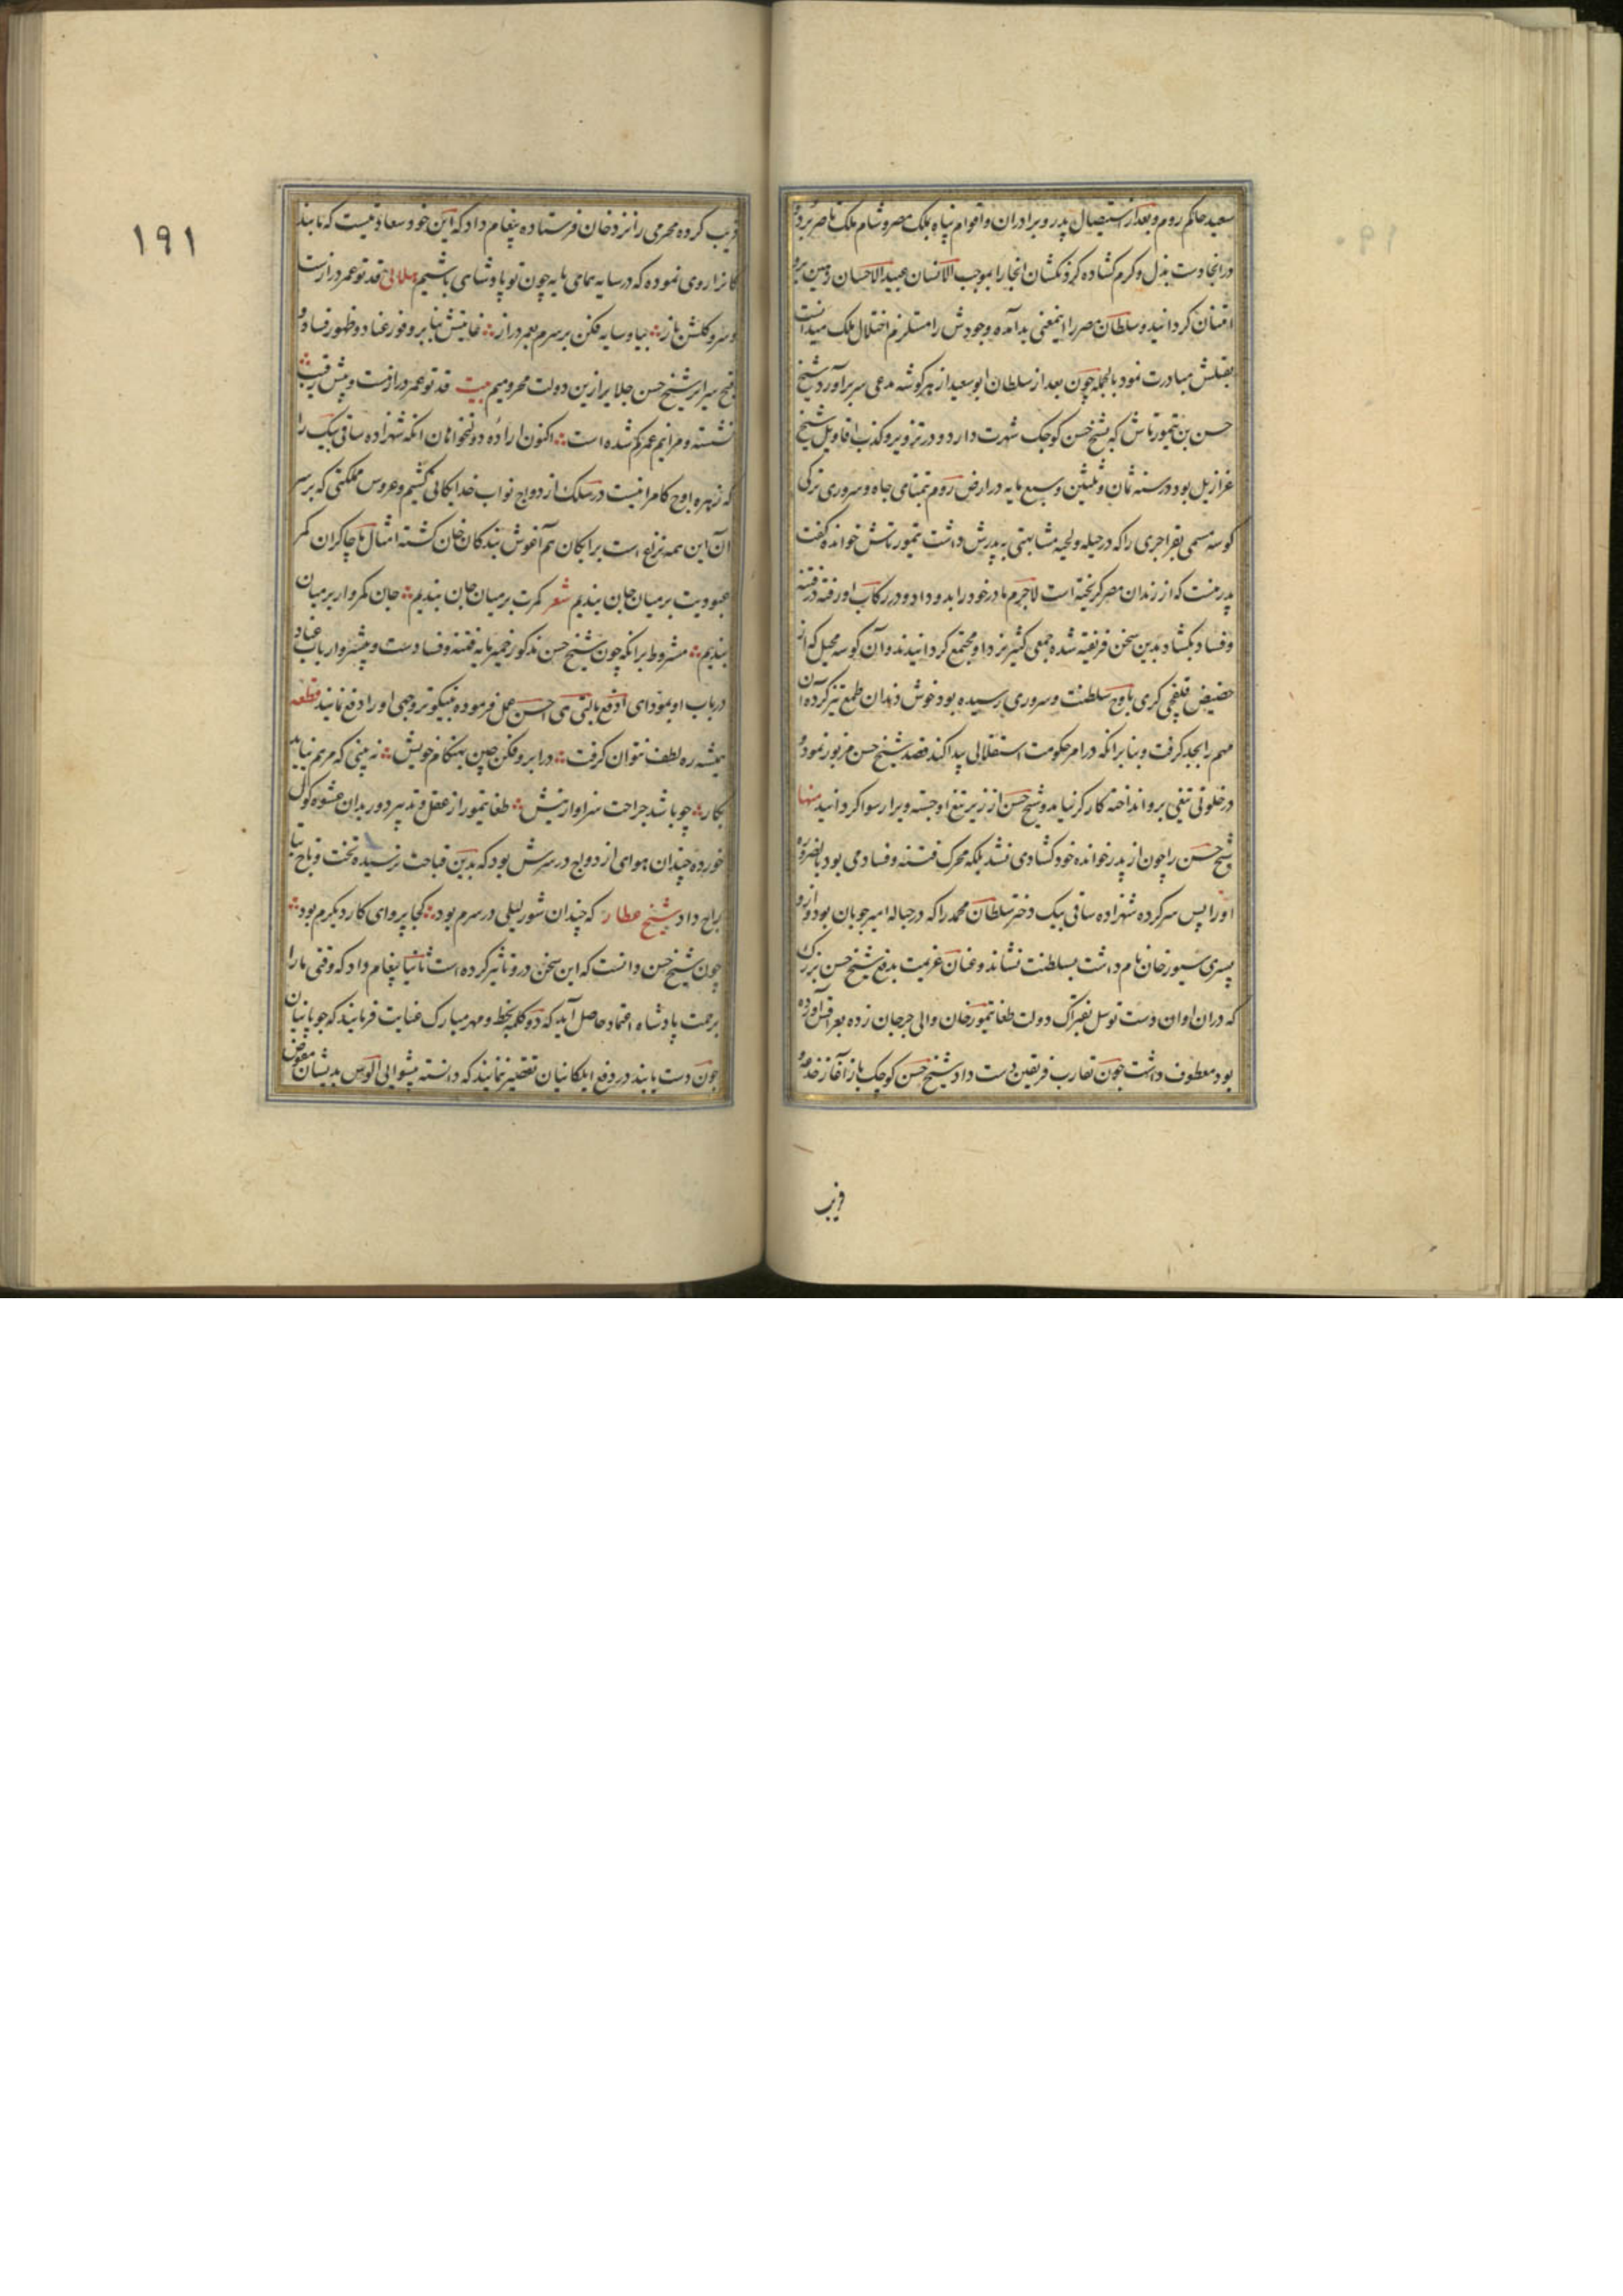 سعید حاکم روم و بعد از استیصال پدر و برادران و اقوام پناه بملک مصر و شام ملک ناصر برد و
در انجا دست بذل و کرم کشاده کردنکشان انجا را بموجب الانسان عبید الاحسان رهین بره
امتنان کردانید و سلطان مصر را اینمعنی بد آمده وجودش را مستلزم اختلال ملک میدانست
بقتلش مبادرت نمود بالجمله چون بعد از سلطان ابوسعید از هر کوشه مدعی سر برآورد شیخ
حسن بن تیمورتاش که بشیخ حسن کوچک شهرت دارد و در تزویر و کذب اقاویل شیخ
عزازیل بود در سنه ثمان و ثلثین و سبع مایه در ارض روم بتمنای جاه و سروری ترکی
کوسه مسمی بقراجری را که در حیله و لحیه مشابهتی به پدرش داشت تیمورتاش خوانده کفت
پدر منست که از زندان مصر کریخته است لاجرم مادر خود را بدو داد و در رکاب او رفته در فتنه
و فساد بکشاد بدین سخن فریفته شده جمعی کثیر نزد او مجتمع کردانیدند و آن کوسه محیل که از
حضیض قلقچی کری باوج سلطنت و سروری رسیده بود خوش دندان طمع تیز کرده آن
مهم را بجد کرفت و بنابر انکه در امر حکومت استقلالی پیدا کند قصد شیخ حسن مزبور نمود و
در خلوتی تیغی برو انداخته کارکر نیامد و شیخ حسن از زیر تیغ او جسته و برا رسوا کردانید منها
شیخ حسن را چون از پدر خوانده خود کشادی نشد بلکه محرک فتنه و فساد می بود بالضروره
او را پس سر کرده شهزاده ساقی بیک دختر سلطان محمد را که در حباله امیر چوبان بود و ازو
پسری سیورخان نام داشت بسلطنت نشاند و عنان عزیمت بدفع شیخ حسن بزرک
که دران اوان دست توسل بفتراک دولت طغاتیمورخان والی جرجان زده بعراقش آورده
بود معطوف داشت چون تقارب فریقین دست داد شیخ حسن کوچک باز آغاز خدعه و
فریب
۱۹۱
فریب کرده محرمی را نزد خان فرستاده پیغام داد که این خود سعادتیست که ما بندکانرا
روی نموده که در سایه همای پایه چون تو پادشاهی باشیم هلالی قد تو عمر درازست
و سرو کلشن ناز بیا و سایه فکن بر سرم بعمر دراز غایتش بنابر وفور عناد و ظهور فساد و
قبح سیرایر شیخ حسن جلایر ازین دولت محرومیم بیت قد تو عمر درازست و پیش رقیب
نشسته و مرا نیم عمر کم شده است اکنون اراده دولتخواهان انکه شهزاده ساقی بیک را
که زهره اوج کامرانیست در سلک ازدواج نواب خدایکانی کشیم و عروس مملکتی که بر سر
آن این همه نزاع است برایکان هم آغوش بندکان خان کشته امثال ما چاکران کمر
عبودیت بر میان جان بندیم شعر کمرت بر میان جان بندیم جان کمروار بر میان
بندیم مشروط برانکه چون شیخ حسن مذکور خمیر مایه فتنه و فسادست و پیشرو ارباب عناد
در باب او بمودای ادفع بالتی هی احسن عمل فرموده بنیکوترین وجهی او را دفع نمایند قطعه
همیشه ره لطف نتوان کرفت در ابرو فکن چین بهنکام خویش نه بینی که مرهم نیاید
بکار چو باشد جراحت سزاوار نیش طغاتیمور از عقل و تدبیر دور بدان عشوه کول
خورده چندان هوای ازدواج در سرش بود که بدین قباحت نرسیده تخت و تاج
راج داد شیخ عطار که چندان شور لیلی در سرم بود کجا پروای کار دیکرم بود
چون شیخ حسن دانست که این سخن درو تاثیر کرده است ثانیا پیغام داد که وقتی ما را
برحمت پادشاه اعتماد حاصل آید که دو کلمه بخط و مهر مبارک عنایت فرمایند که چوپانیان
چون دست یابند در دفع ایلکانیان تقصیر ننمایند که دانسته پیشوایی الوس بدیشان مفوض